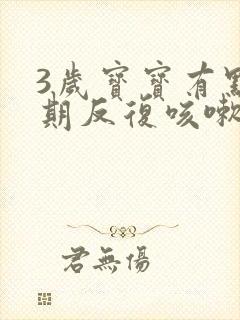 3歲寶寶有點
期反復咳嗽
君無傷